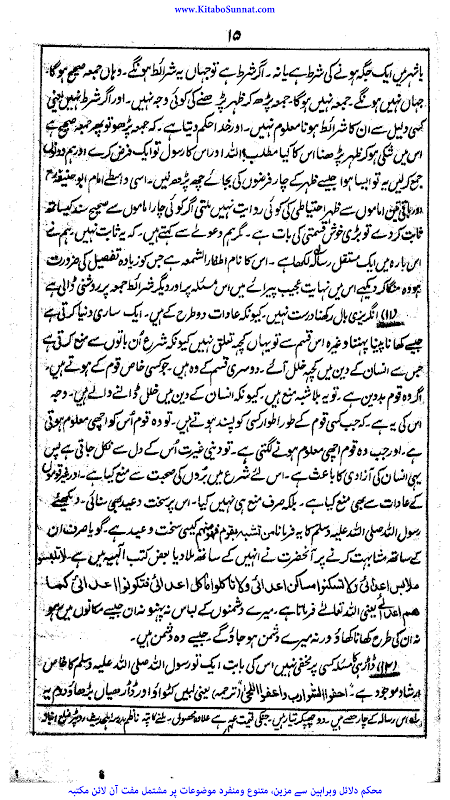 www.KitaboSunnat.com
۱۵
یا شہر میں ایک جگہ ہونے کی شرط ہے یا نہ۔ اگر شرط ہے تو جہاں یہ شرائط ہونگے۔ وہاں جمعہ صحیح ہوگا۔
جہاں نہیں ہونگے۔ جمعہ نہیں ہوگا۔ جمعہ پڑھ کہ ظہر پڑھنے کی کوئی وجہ نہیں۔ اور اگر شرط نہیں یعنی
کسی دلیل سے ان کا شرائط ہونا معلوم نہیں۔ اور خدا حکم دیتا ہے۔ کہ جمعہ پڑھو تو پھر جمعہ صحیح ہے
اس میں شکی ہو کر ظہر پڑھنا اس کا کیا مطلب؟ اللہ اور اس کا رسول تو ایک فرض کرے اور ہم دونوں
جمع کرلیں یہ تو ایسا ہوا جیسے ظہر کے چار فرضوں کی بجائے چھ پڑھ لیں۔ اسی واسطے امام ابو حنیفہؒ
اور باقی تین اماموں سے ظہر احتیاطی کی کوئی روایت نہیں ملتی اگر کوئی چار اماموں سے صحیح سند کیساتھ
ثابت کر دے تو بڑی خوش قسمتی کی بات ہے۔ مگر ہم دعوے سے کہتے ہیں۔ کہ یہ ثابت نہیں ہم نے
اس بارہ میں ایک مستقل رسالہ لکھا ہے۔ اس کا نام اطفاء الشمعہ ہے جس کو زیادہ تفصیل کی ضرورت
ہو وہ منگا کر دیکھے اس میں نہایت عجیب پیرائے میں اس مسئلہ پر اور دیگر شرائط جمعہ پر روشنی ڈالی ہے
(۱۱) انگریزی بال رکھنا درست نہیں۔ کیونکہ عادات دو طرح کے ہیں۔ ایک ساری دنیا کرتی ہے
جیسے کھانا پینا پہننا وغیرہ اس قسم سے تو یہاں کچھ تعلق نہیں کیونکہ شرع اُن باتوں سے منع کرتی ہے
جس سے انسان کے دین میں کچھ خلل آئے۔ دوسری قسم کے وہ ہیں۔ جو کسی خاص قوم کے ہوتے ہیں
اگر وہ قوم بددین ہے۔ تو یہ بلاشبہ منع ہیں۔ کیونکہ انسان کے دین میں خلل ڈالنے والے ہیں۔ وجہ
اس کی یہ ہے۔ کہ جب کسی قوم کے طور اطوار کسی کو پسند ہوتے ہیں۔ تو وہ قوم اُس کو اچھی معلوم ہوتی
ہے۔ اور جب وہ قوم اچھی معلوم ہونے لگتی ہے۔ تو دینی غیرت اُس کے دل سے نکل جاتی ہے پس
یہی انسان کی آزادی کا باعث ہے۔ اس لئے شرع میں بُروں کی صحبت سے منع کیا ہے۔ اور غیر قوموں
کے عادات سے بھی منع کیا ہے۔ بلکہ صرف منع ہی نہیں کیا۔ اس پر سخت وعید بھی سنائی۔ دیکھئے
رسول اللہ صلی اللہ علیہ وسلم کا یہ فرمانا من تشبہ بقوم فھو منہم کیسی سخت وعید ہے۔ گویا صرف ان
کے ساتھ مشابہت کرنے پر آنحضرت نے انہیں کے ساتھ ملا دیا بعض کتب الٰہیہ میں ہے لا تلبسوا
ملابس اعدائی ولا تسکنوا مساکن اعدائی ولا تاکلوا ماکل اعدائی فتکونوا اعدائی کما
ھم اعدائی یعنی اللہ تعالےٰ فرماتا ہے۔ میرے دشمنوں کے لباس نہ پہنو نہ ان جیسے مکانوں میں رہو
نہ ان کی طرح کھانا کھاؤ ورنہ میرے دشمن ہو جاؤ گے۔ جیسے وہ دشمن ہیں۔
(۱۲) ڈاڑھی کا مسئلہ کسی پر مخفی نہیں اس کی بابت ایک تو رسول اللہ صلی اللہ علیہ وسلم کا خاص
ارشاد موجود ہے۔ احفوا الشوارب واعفوا اللحیٰ (ترجمہ) یعنی لبیں کٹواؤ اور ڈاڑھیاں بڑھاؤ دوم یہ
اس رسالہ کے چار حصے ہیں۔ دو چھپکر تیار ہیں۔ جنکی قیمت ہے علاوہ محصول۔ ملنے کا پتہ
محکم دلائل وبراہین سے مزین، متنوع ومنفرد موضوعات پر مشتمل مفت آن لائن مکتبہ